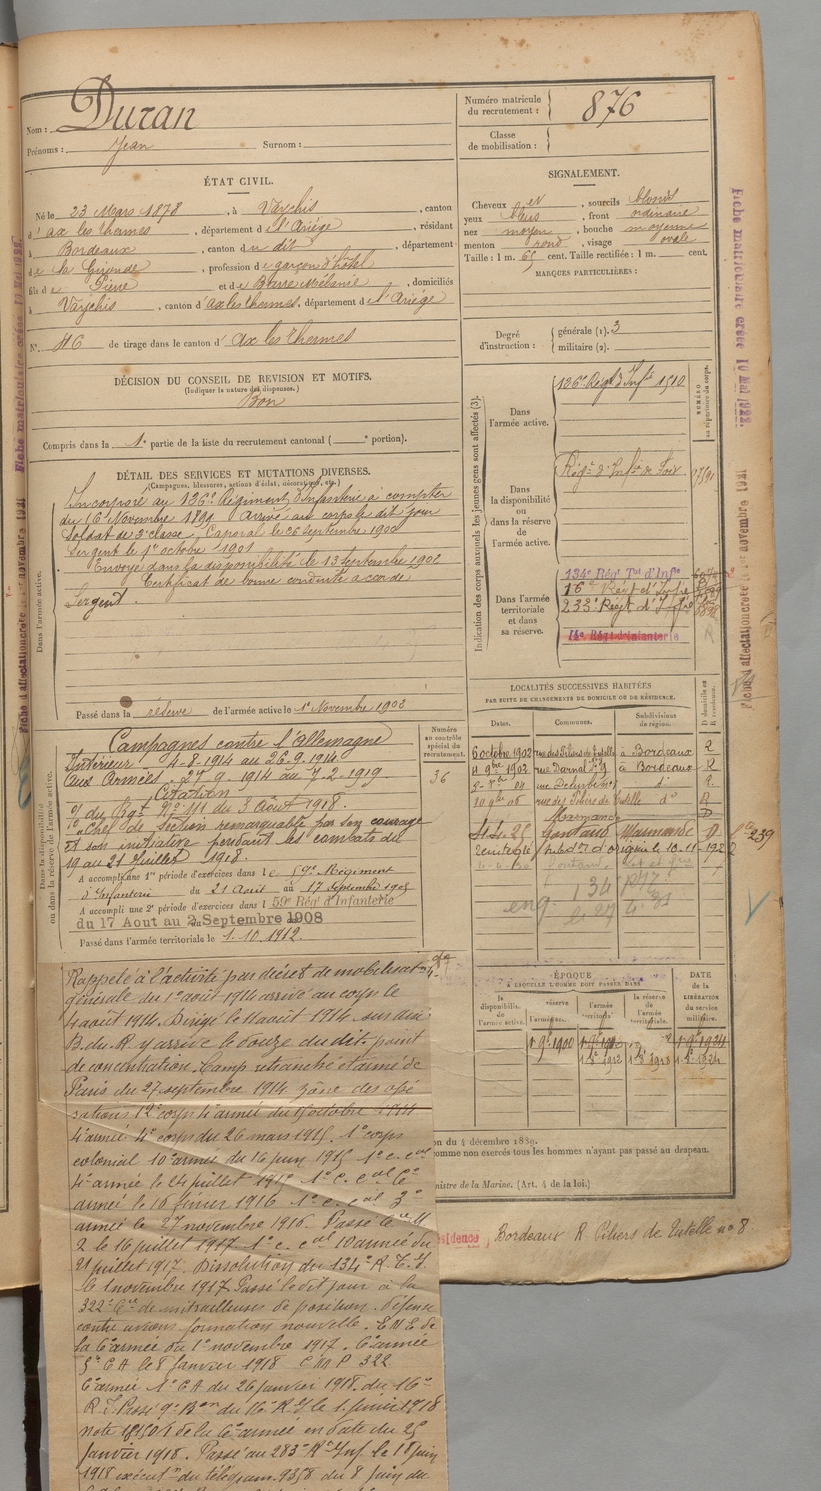 Nom : Duran
Prénoms : Jean Surnom :
ÉTAT CIVIL.
Né le 23 Mars 1878, à Vaychis, canton
d'ax les thermes, département de l'Ariége, résidant
à Bordeaux, canton du dit, département
de la Gironde, profession de garçon d'hôtel
fils de Pierre et de Barre Mélanie, domiciliés
à Vaychis, canton d'ax les thermes, département de l'Ariége
N° 46 de tirage dans le canton d'Ax les thermes
DÉCISION DU CONSEIL DE REVISION ET MOTIFS.
(Indiquer la nature des dispenses.)
Bon
Compris dans la 1e partie de la liste du recrutement cantonal ( e portion).
DÉTAIL DES SERVICES ET MUTATIONS DIVERSES.
(Campagnes, blessures, actions d'éclat, décorations, etc.)
Dans l'armée active.
Incorporé au 136e Régiment d'Infanterie à compter
du 16 Novembre 1899 Arrivé au corps le dit jour
Soldat de 2e classe, Caporal le 26 septembre 1900
Sergent le 1er octobre 1901
Envoyé dans la disponibilité le 13 Septembre 1902
Certificat de bonne conduite accordé
Sergent.
Passé dans la réserve de l'armée active le 1er Novembre 1902
Dans la disponibilité ou dans la réserve de l'armée active.
Numéro au contrôle spécial du recrutement.
36
Campagnes contre l'Allemagne
Intérieur 4-8-1914 au 26-9-1914
Aux Armées. 27-9-1914 au 7-2-1919
Citation
O/ du Rgt N° 111 du 3 Août 1918.
Chef de section remarquable par son courage
et son initiative pendant les combats du
19 au 21 Juillet 1918.
A accompli une 1re période d'exercices dans le 59e Régiment
d'Infanterie du 21 Août au 17 septembre 1905
A accompli une 2e période d'exercices dans le 59e Régt d'Infanterie
du 17 Aout au 2 Septembre 1908
Passé dans l'armée territoriale le 1.10.1912.
Rappelé à l'activité par décret de mobilisation
générale du 1er août 1914 arrivé au corps le
4 août 1914. Dirigé le 11 août 1914 sur
B. du R. y arrive le douze du dit. point
de concentration. Camp retranché et armée de
Paris du 27 septembre 1914 zône des opé
rations 12e corps 4e armée du octobre 1914
4e armée 4e corps du 26 mars 1915. 1e corps
colonial 10e armée du 16 juin 1915 1e c. cal
4e armée le 24 juillet 1915 1e c. cal 6e
armée le 16 février 1916 1e c. cal 3e
armée le 27 novembre 1916. Passé Cie M
2 le 16 juillet 1917 1e c. cal 10e armée du
21 juillet 1917. Dissolution du 134e R.T.I.
le 1 novembre 1917. Passé le dit jour à la
322e Cie de mitrailleuses de position. défense
contre avions formation nouvelle. E M E de
la 6e armée du 1er novembre 1917. 6e armée
5e C A le 8 Janvier 1918 C M P 322
6e armée 1e C A du 26 janvier 1918. du 16e
R. T. Passé 9e Bon du 16e R T le 1 février 1918
note de la 6e armée en date du 25
janvier 1918. Passé au 283e Rt Inf le 18 juin
1918 exécutn du télégram. 9358 du 8 juin du
Numéro matricule du recrutement : 876
Classe de mobilisation :
SIGNALEMENT.
Cheveux et, sourcils blonds
yeux bleus, front ordinaire
nez moyen, bouche moyenne
menton rond, visage ovale
Taille : 1 m. 65 cent. Taille rectifiée : 1 m. cent.
MARQUES PARTICULIÈRES :
Degré d'instruction : générale (1). 3
militaire (2).
Indication des corps auxquels les jeunes gens sont affectés (3).
NUMÉRO au répertoire du corps.
Dans l'armée active.
136e Régt d'Infie 1510
Dans la disponibilité ou dans la réserve de l'armée active.
Régt d'Infie de
Dans l'armée territoriale et dans sa réserve.
134e Régt Tal d'Infie
16e Régt d'Infie
233e Régt d'Infie
16e Régt d'Infanterie
LOCALITÉS SUCCESSIVES HABITÉES
PAR SUITE DE CHANGEMENTS DE DOMICILE OU DE RÉSIDENCE.
Dates. Communes. Subdivisions de région. D domicile ou R résidence.
6 octobre 1902 rue des Piliers de Tutelle à Bordeaux R
4 9bre 1902 rue Darnal à Bordeaux R
10 9bre 06 rue des Piliers de Tutelle do R
Marmande D
4.4.25 Gontaud Marmande D
239
subdon d'origine le 10-11-192
eng
ÉPOQUE
A LAQUELLE L'HOMME DOIT PASSER DANS
la disponibilité de l'armée active. la réserve de l'armée active. l'armée territoriale. la réserve de l'armée territoriale.
DATE de la LIBÉRATION du service militaire.
1 9bre 1900
1 8bre 1912 1 8bre 1918 1 8bre 1924
on du 4 décembre 1889.
omme non exercés tous les hommes n'ayant pas passé au drapeau.
nistre de la Marine. (Art. 4 de la loi.)
sidence, Bordeaux R. Piliers de Tutelle no 8
Fiche matriculaire créée 10 Mai 1922.
Fiche d'affectation créée 1er novembre 1921